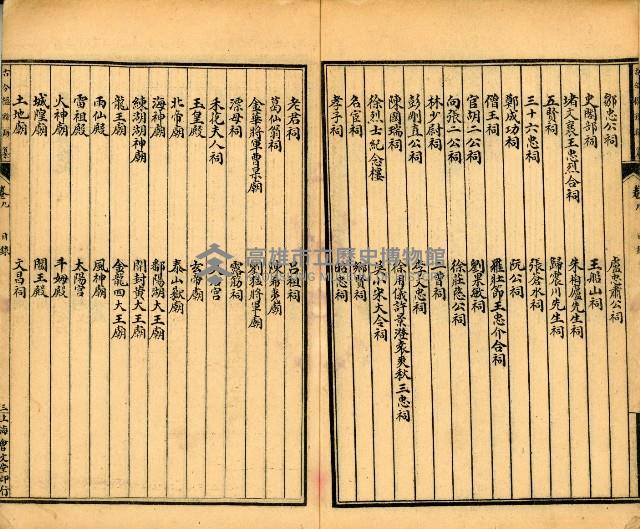 鄒忠公祠
盧忠肅公祠
史閣部祠
王船山祠
堵文襄王忠烈合祠
朱柏廬先生祠
五賢祠
歸震川先生祠
三十六忠祠
張蒼水祠
鄭成功祠
阮公祠
僧王祠
羅壯節王忠介合祠
官胡二公祠
劉果敏祠
向張二公祠
徐莊愍公祠
林少尉祠
曹祠
彭剛直公祠
李文忠祠
陳國瑞祠
徐用儀許景澄袁爽秋三忠祠
徐烈士紀念樓
吳小宋大合祠
名宦祠
鄉賢祠
孝子祠
昭忠祠
老君祠
呂祖祠
葛仙翁祠
陳希夷廟
金華將軍曹杲廟
劉猛將軍廟
漂母祠
露筋祠
禾花夫人祠
宮
玉皇殿
玄帝廟
北帝廟
泰山嶽廟
海神廟
鄱陽湖大王廟
練湖湖神廟
開封黃大王廟
龍王廟
金龍四大王廟
雨仙殿
風神廟
雷祖殿
太陽宮
火神廟
斗姆殿
城隍廟
閻王殿
土地廟
文昌祠
卷九
目錄
上海會文堂印行
高雄市立歷史博物館